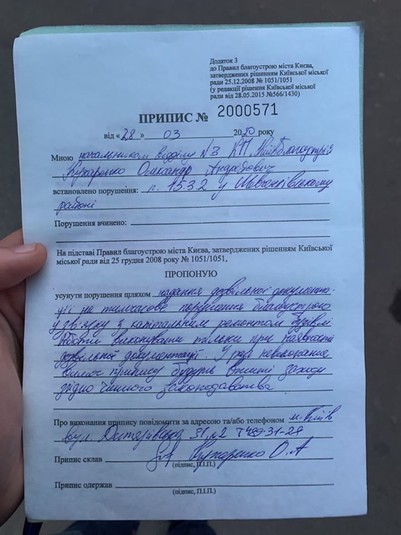 Додаток 3
до Правил благоустрою міста Києва,
затверджених рішенням Київської міської
ради 25.12.2008 № 1051/1051
(у редакції рішення Київської міської
ради від 28.05.2015 №566/1430)
ПРИПИС № 2000571
від « 28 » 03 2020 року
Мною начальником відділу №3 КП „Київблагоустрій
Кухаренко Олександр Андрійович
встановлено порушення: п. 15.3.2 у Шевченківському
районі
Порушення вчинено:
На підставі Правил благоустрою міста Києва, затверджених рішенням Київської
міської ради від 25 грудня 2008 року № 1051/1051,
ПРОПОНУЮ
усунути порушення шляхом: надання дозвільної документа-
ції на тимчасове порушення благоустрою
у зв'язку з капітальним ремонтом будівлі
Роботи виконувати тільки при наявності
дозвільної документації. У разі невиконання
вимог припису будуть вжиті заходи
згідно чинного законодавства
Про виконання припису повідомити за адресою та/або телефоном м. Київ
вул 31,
Припис склав Кухаренко О.А
(підпис, П.І.П.)
Припис одержав
(підпис, П.І.П.)